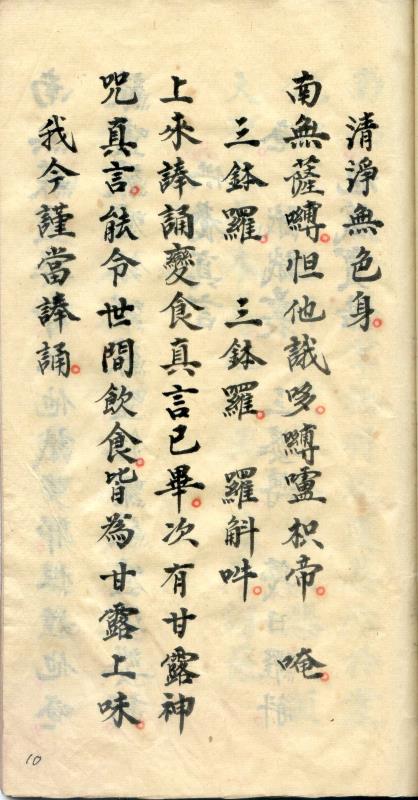 清淨無色身。
南無薩嚩怛他誐哆。嚩嚧枳帝。唵。
三鉢羅。三鉢羅。羅斛吽。
上來諱誦變食真言已畢。次有甘露神
咒真言。能令世間飲食。皆為甘露上味。
我今謹當諱誦。
10